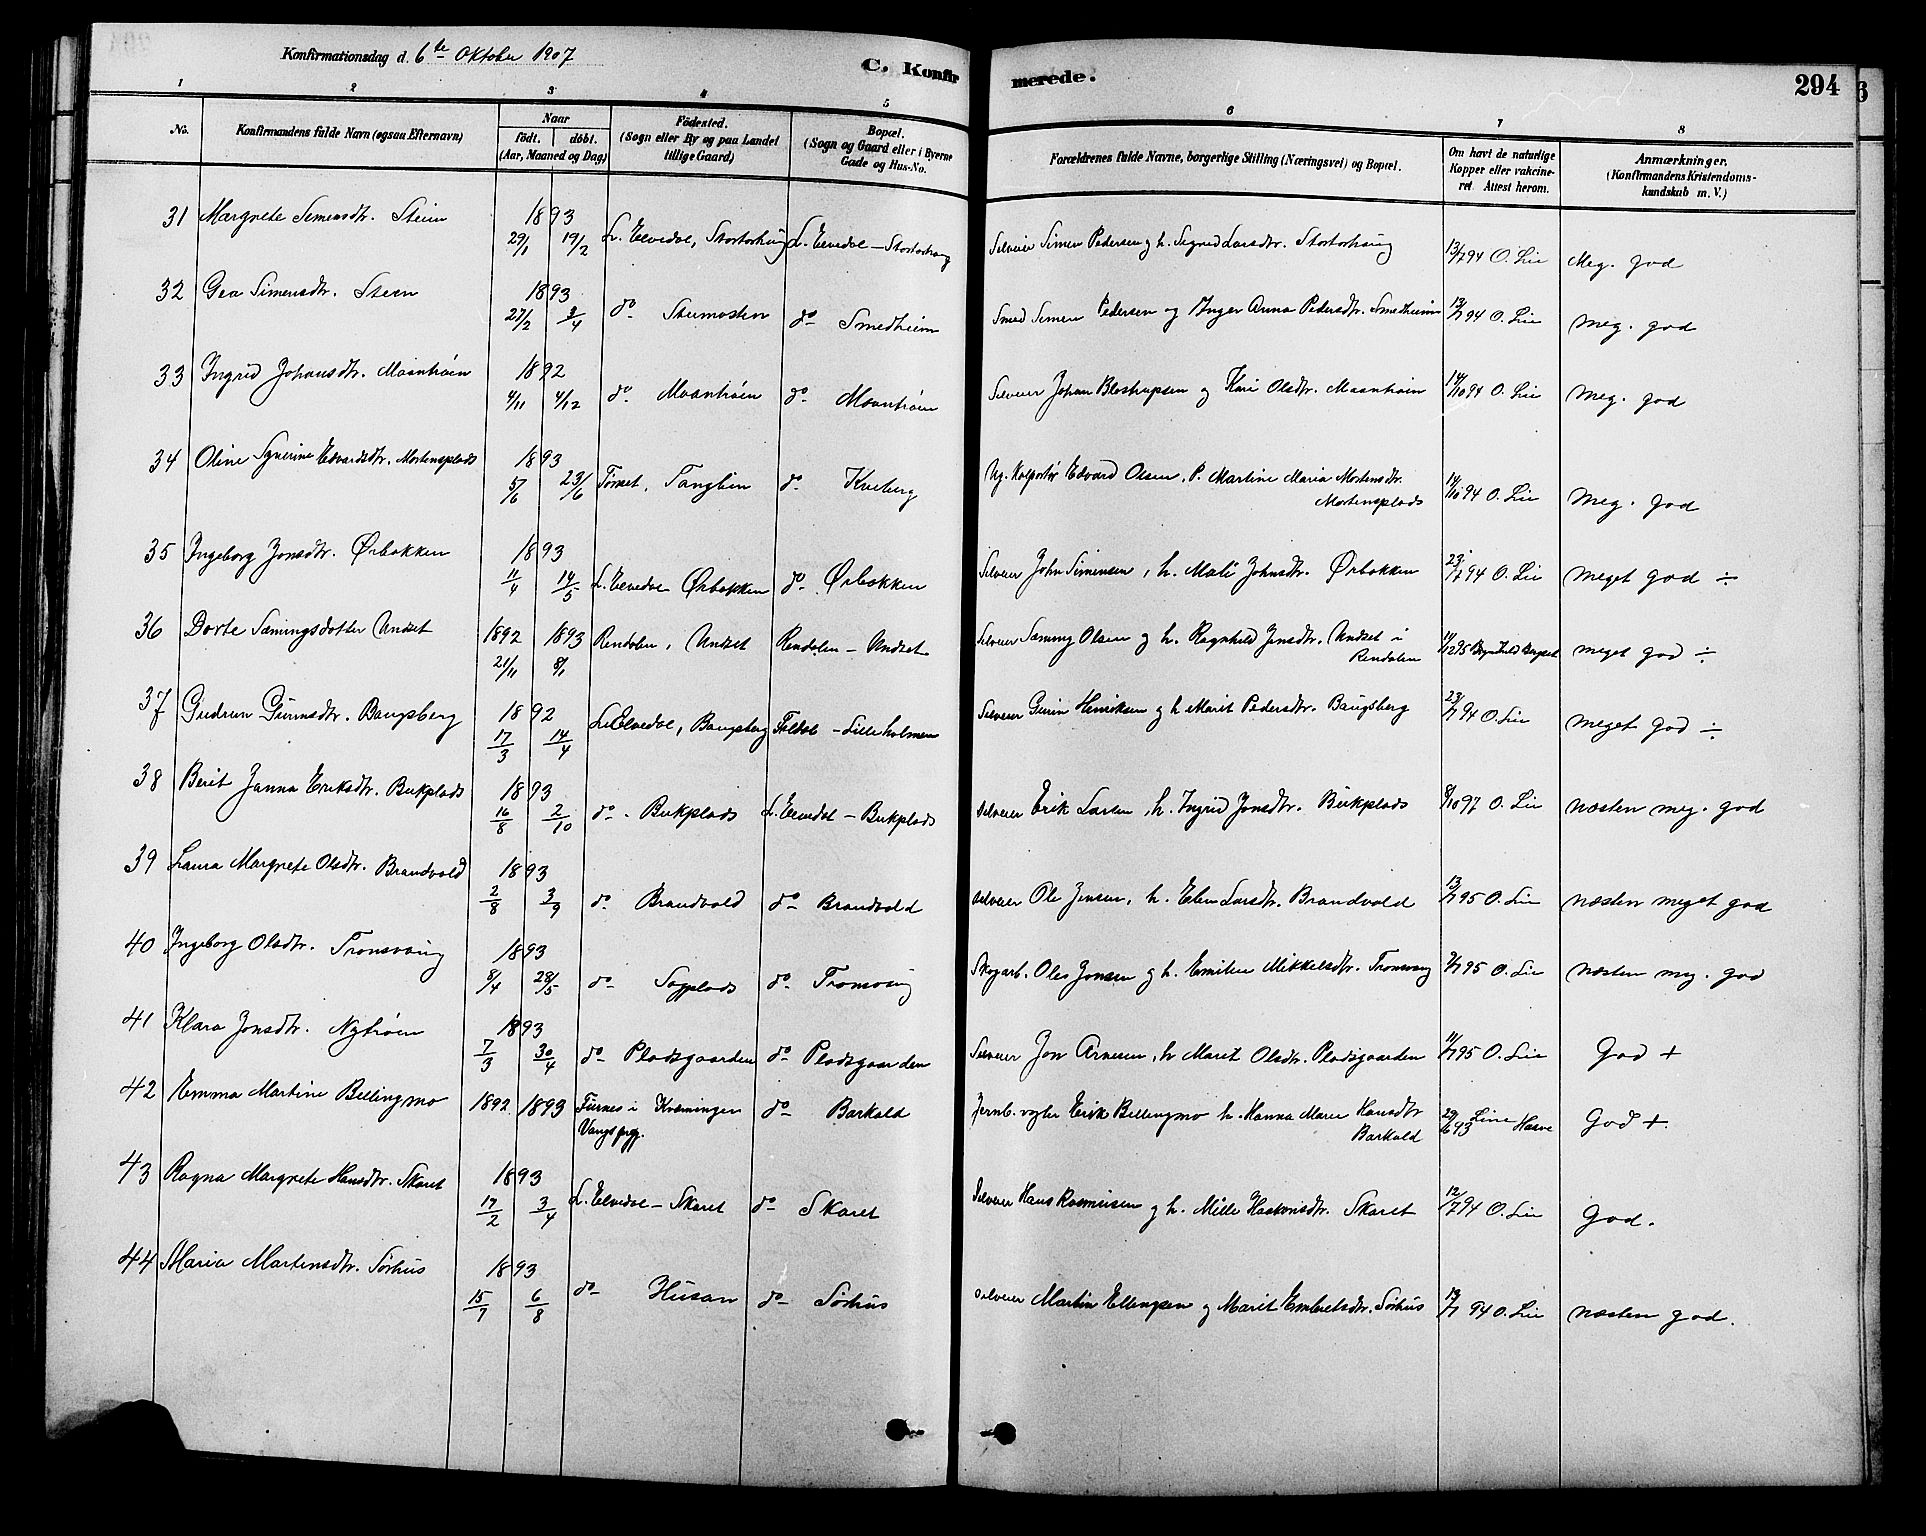 Konfirmationsdag d. 6te Oktober 1907
C. Konfirmerede.
294
1 2 3 4 5 6 7 8
No.
Konfirmandens fulde Navn (ogsaa Efternavn)
Naar
födt. döbt.
(Aar, Maaned og Dag)
Födested.
(Sogn eller By og paa Landet
tillige Gaard)
Bopæl.
(Sogn og Gaard eller i Byerne
Gade og Hus-No.
Forældrenes fulde Navne, borgerlige Stilling (Næringsvei) og Bopæl.
Om havt de naturlige
Kopper eller vakcine-
ret. Attest herom.
Anmærkninger.
(Konfirmandens Kristendoms-
kundskab m. V.)
31 Margrete Simensdtr. Steim 1893 29/1 19/2 L. Elvedal, Stortorhaug L. Elvedal – Stortorhaug Selveier Simen Pedersen g h. Sigrid Larsdtr. Stortorhaug 13/7 94 O. Lie Meg. god
32 Gea Simensdtr. Steen 1893 27/2 3/4 do Steimosten do Smedheim Smed Simen Pedersen og Inger Anna Pedersdtr. Smedheim 13/7 94 O. Lie Meg. god
33 Ingrid Johansdtr. Moantrøen 1892 4/11 4/12 do Moantrøen do Moantrøen Selveier Johan Blostrupsen og Kari Olsdtr. Moantrøen 14/10 94 O. Lie Meg. god
34 Oline Severine Edvardsdtr. Mortensplads 1893 5/6 23/6 Tønset, Tanglien do Kveberg Ug. Kolportør Edvard Olsen, P. Martine Maria Mortensdtr.
Mortensplads 14/10 94 O. Lie Meg. god
35 Ingeborg Jonsdtr. Ørbakken 1893 11/4 14/5 L. Elvedal Ørbakken do Ørbakken Selveier John Simensen, h. Mali Johnsdtr. Ørbakken 23/7 94 O. Lie meget god ÷
36 Dorte Sæmingsdotter Undset 1892 21/11 1893 8/1 Rendalen, Undset Rendalen – Undset Selveier Sæming Olsen og h. Ragnhild Jensdtr. Undset i
Rendalen 11/12 95 meget god ÷
37 Gudrun Gunnsdtr. Baugsberg 1892 17/3 14/4 L. Elvedal, Baugsberg Foldal – Lilleholmen Selveier Henriksen g h Marit Pedersdtr. Baugsberg 23/7 94 O. Lie meget god ÷
38 Berit Janna Eriksdtr. Bukplads 1893 16/8 2/10 do. Bukplads L. Elvedal – Bukplads Selveier Erik Larsen, h. Ingrid Jonsdtr. Bukplads 8/10 97 O. Lie næsten meg. god
39 Laura Margrete Olsdtr. Brandvold 1893 2/8 3/9 do Brandvold do Brandvold selveier Ole Jensen, h. Elen Larsdtr. Brandvold 13/7 95 O. Lie næsten meget god
40 Ingeborg Olsdtr. Tronsvang 1893 8/4 28/5 do Sagplads do Tronsvang Skogarb. Ole Jonsen g h. Emilie Mikkelsdtr. Tronsvang 7/7 95 O. Lie næsten meg. god
41 Klara Jonsdtr. Nytrøen 1893 7/3 30/4 do Pladsgaarden do Pladsgaarden Selveier Jon Arnesen, h Marit Olsdtr. Pladsgaarden 11/7 95 O. Lie God +
42 Emma Martine Bellingmo 1892 1893 Furnes i Kvæmingen
Vangs prgj. do Barkald Jernb. vogter Erik Bellingmo h. Hanna Marie Hansdtr
Barkald 29/6 93 God +
43 Ragna Margrete Hansdtr. Skaret 1893 17/2 3/4 L. Elvedal – Skaret do Skaret Selveier Hans Rasmusen g h. Mille Haakonsdtr. Skaret 12/7 94 O. Lie god.
44 Maria Martensdtr. Sørhus 1893 15/7 6/8 do Husan do Sørhus selveier Martin Ellingsen og Marit Embretsdtr. Sørhus 13/7 94 O. Lie næsten god.